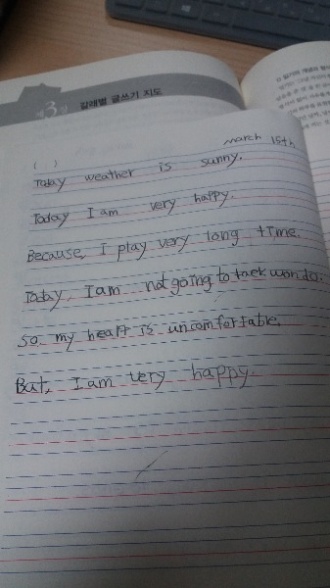 제3장 갈래별 글쓰기 지도
March 15th
( )
Today weather is sunny.
Today I am very happy.
Because, I play very long time.
Today, I am not going to taek wondo.
So, my heart is uncomfortable.
But, I am very happy.